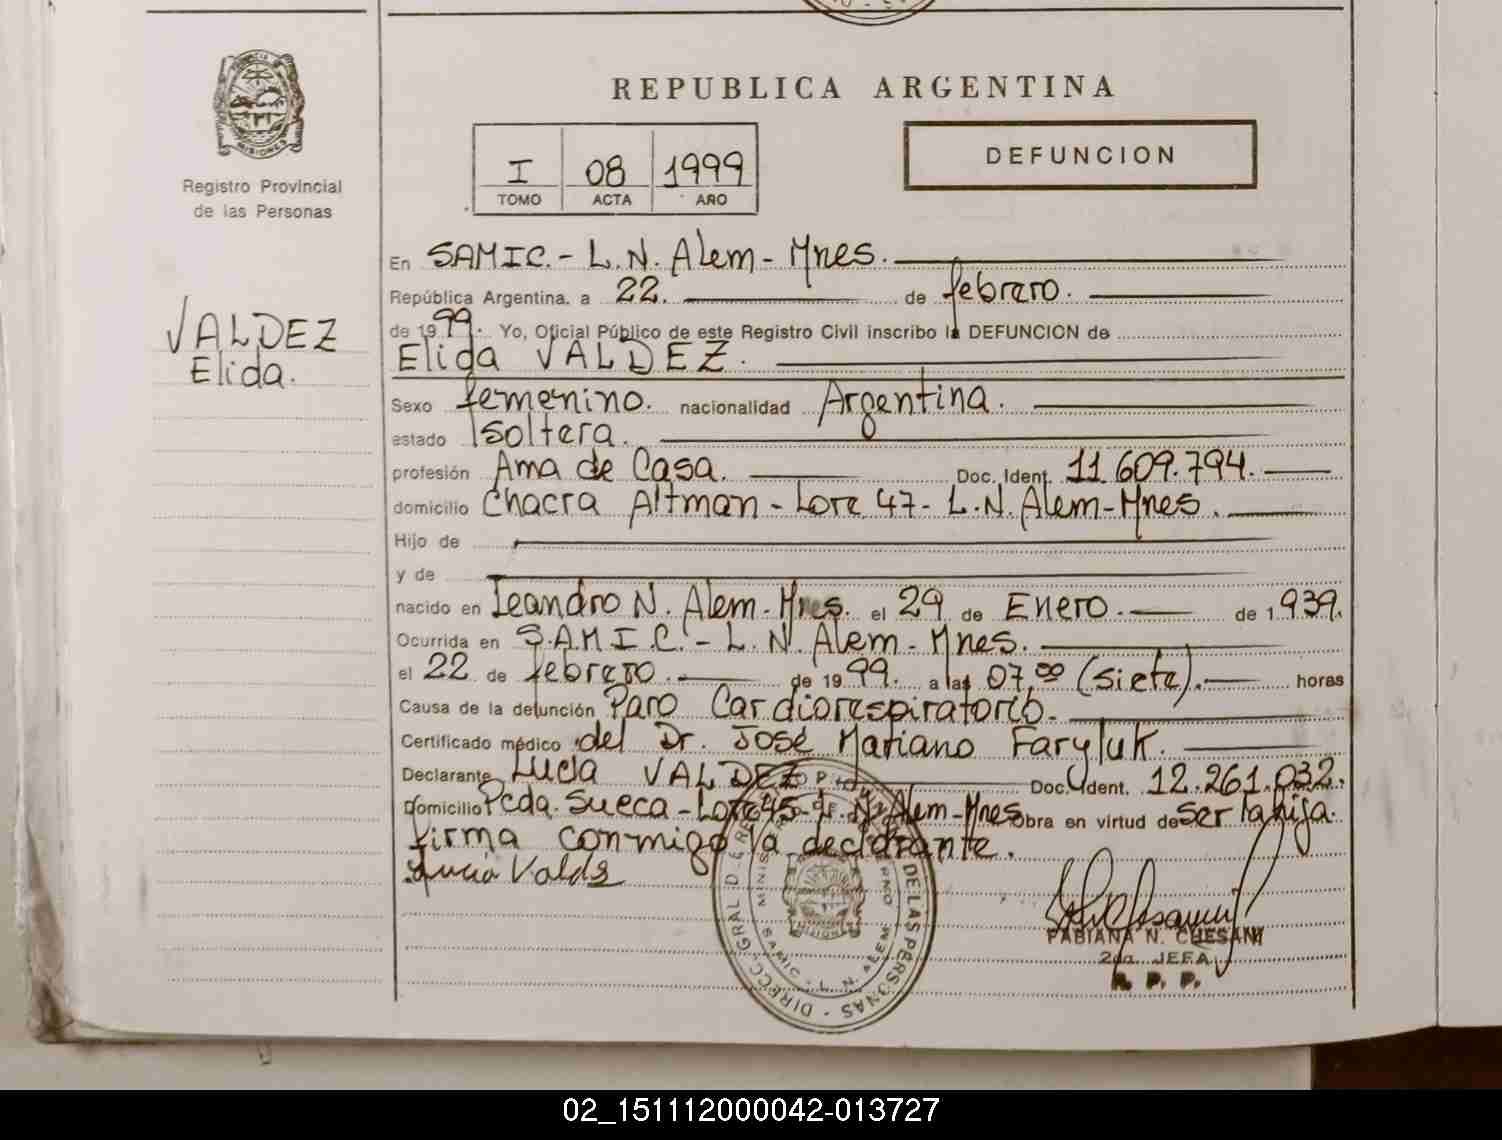 REPUBLICA ARGENTINA
DEFUNCION
I 08 1999
TOMO ACTA AÑO
PROVINCIA DE MISIONES
Registro Provincial
de las Personas
VALDEZ
Elida.
En SAMIC.- L.N. Alem - Mnes.
República Argentina, a 22. de febrero.
de 1999. Yo, Oficial Público de este Registro Civil inscribo la DEFUNCION de
Elida VALDEZ.
Sexo femenino. nacionalidad Argentina.
estado Soltera.
profesión Ama de Casa. Doc. Ident. 11.609.794.
domicilio Chacra Altman - Lote 47- L.N. Alem-Mnes.
Hijo de
y de
nacido en Leandro N. Alem. Mnes. el 29 de Enero. de 1939.
Ocurrida en S.A.M.I.C. - L.N. Alem - Mnes.
el 22 de febrero. de 1999. a las 07,00 (siete). horas
Causa de la defunción Paro Cardiorespiratorio.
Certificado médico del Dr. José Mariano Faryluk.
Declarante Lucia VALDEZ Doc. Ident. 12.261.032.
Domicilio Pcda. Sueca - Lote 45- L.N. Alem-Mnes Obra en virtud de ser la hija.
firma conmigo la declarante.
Lucia Valds
FABIANA N. CHESANI
2da. JEFA
R. P. P.
DIRECC. GRAL D. E R. DE LAS PERSONAS
SAMIC - L. N. ALEM
MISIONES
02_151112000042-013727